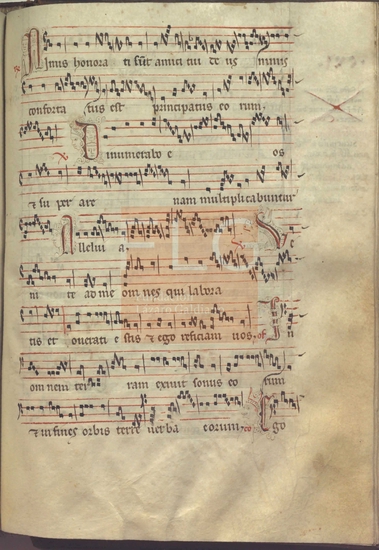 Nimis honora ti sūt amici tui de us nimis
conforta tus est principatus eo rum.
Dinumerabo e os
& su per are nam multiplicabuntur
Allelui a. Ve
ni te ad me om nes qui labora
tis et onerati e stis & ego reficiam uos, of In
omnem ter ram exiuit sonus eo rum
& in fines orbis terre uerba eorum, co Ego